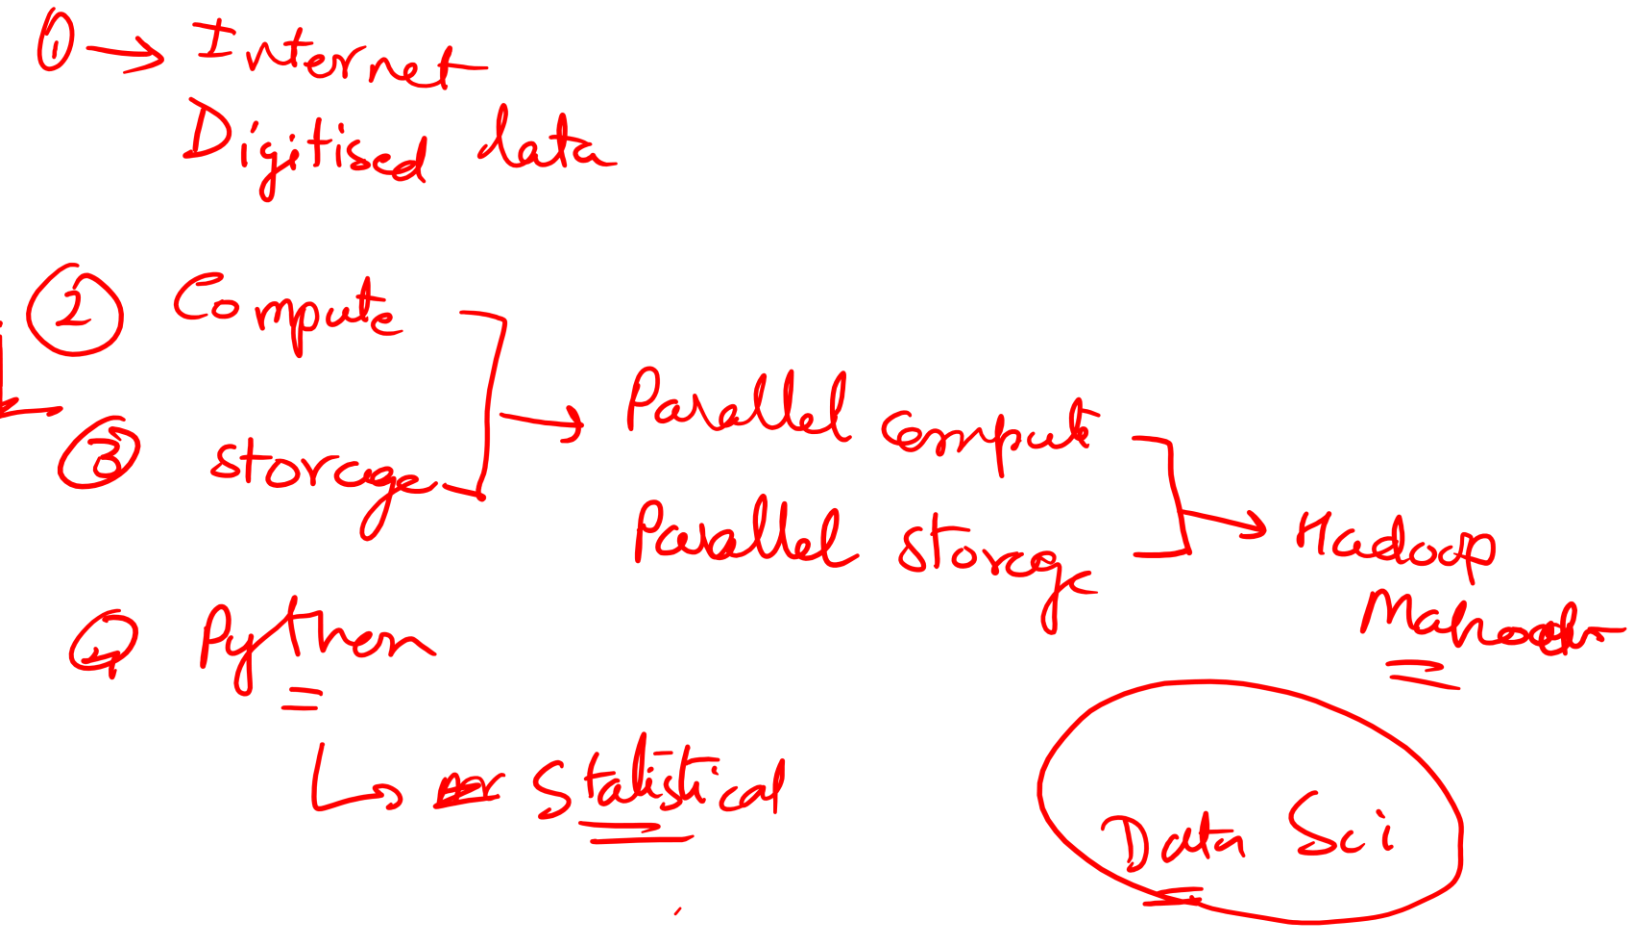 ① → Internet
Digitised data
② Compute
③ storage
Parallel compute
Parallel storage
Hadoop
Mahout
④ Python
Statistical
Data Sci